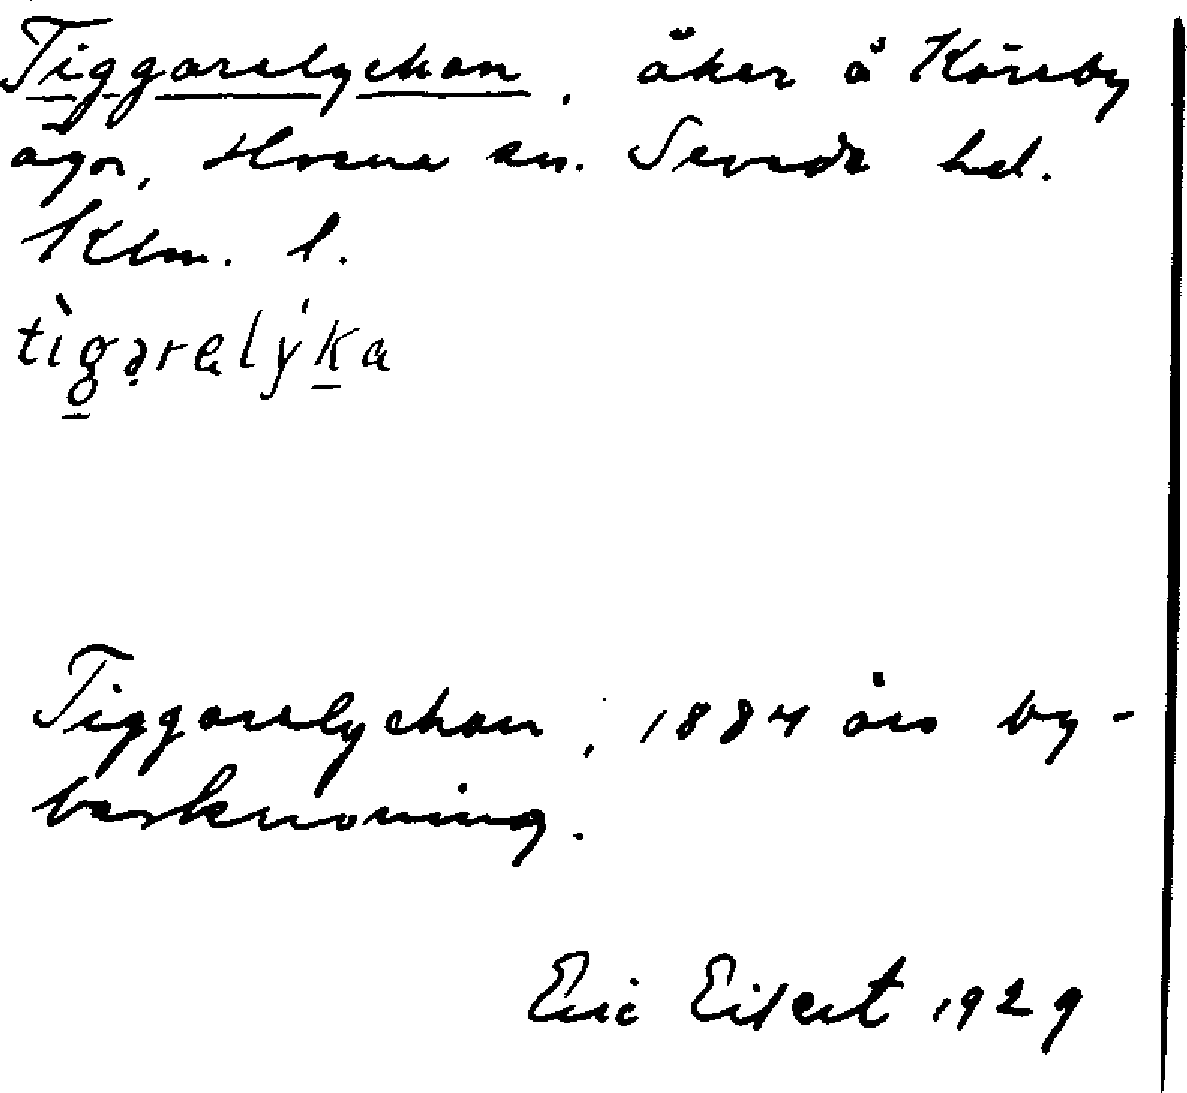 Tiggarelyckan, åker å Köreby
ägor, Horne sn. Sevede hd.
Klm. l.
tìgạrelýka
Tiggarelyckan, 1884 års by-
beskrivning.
Eric Eilert 1929